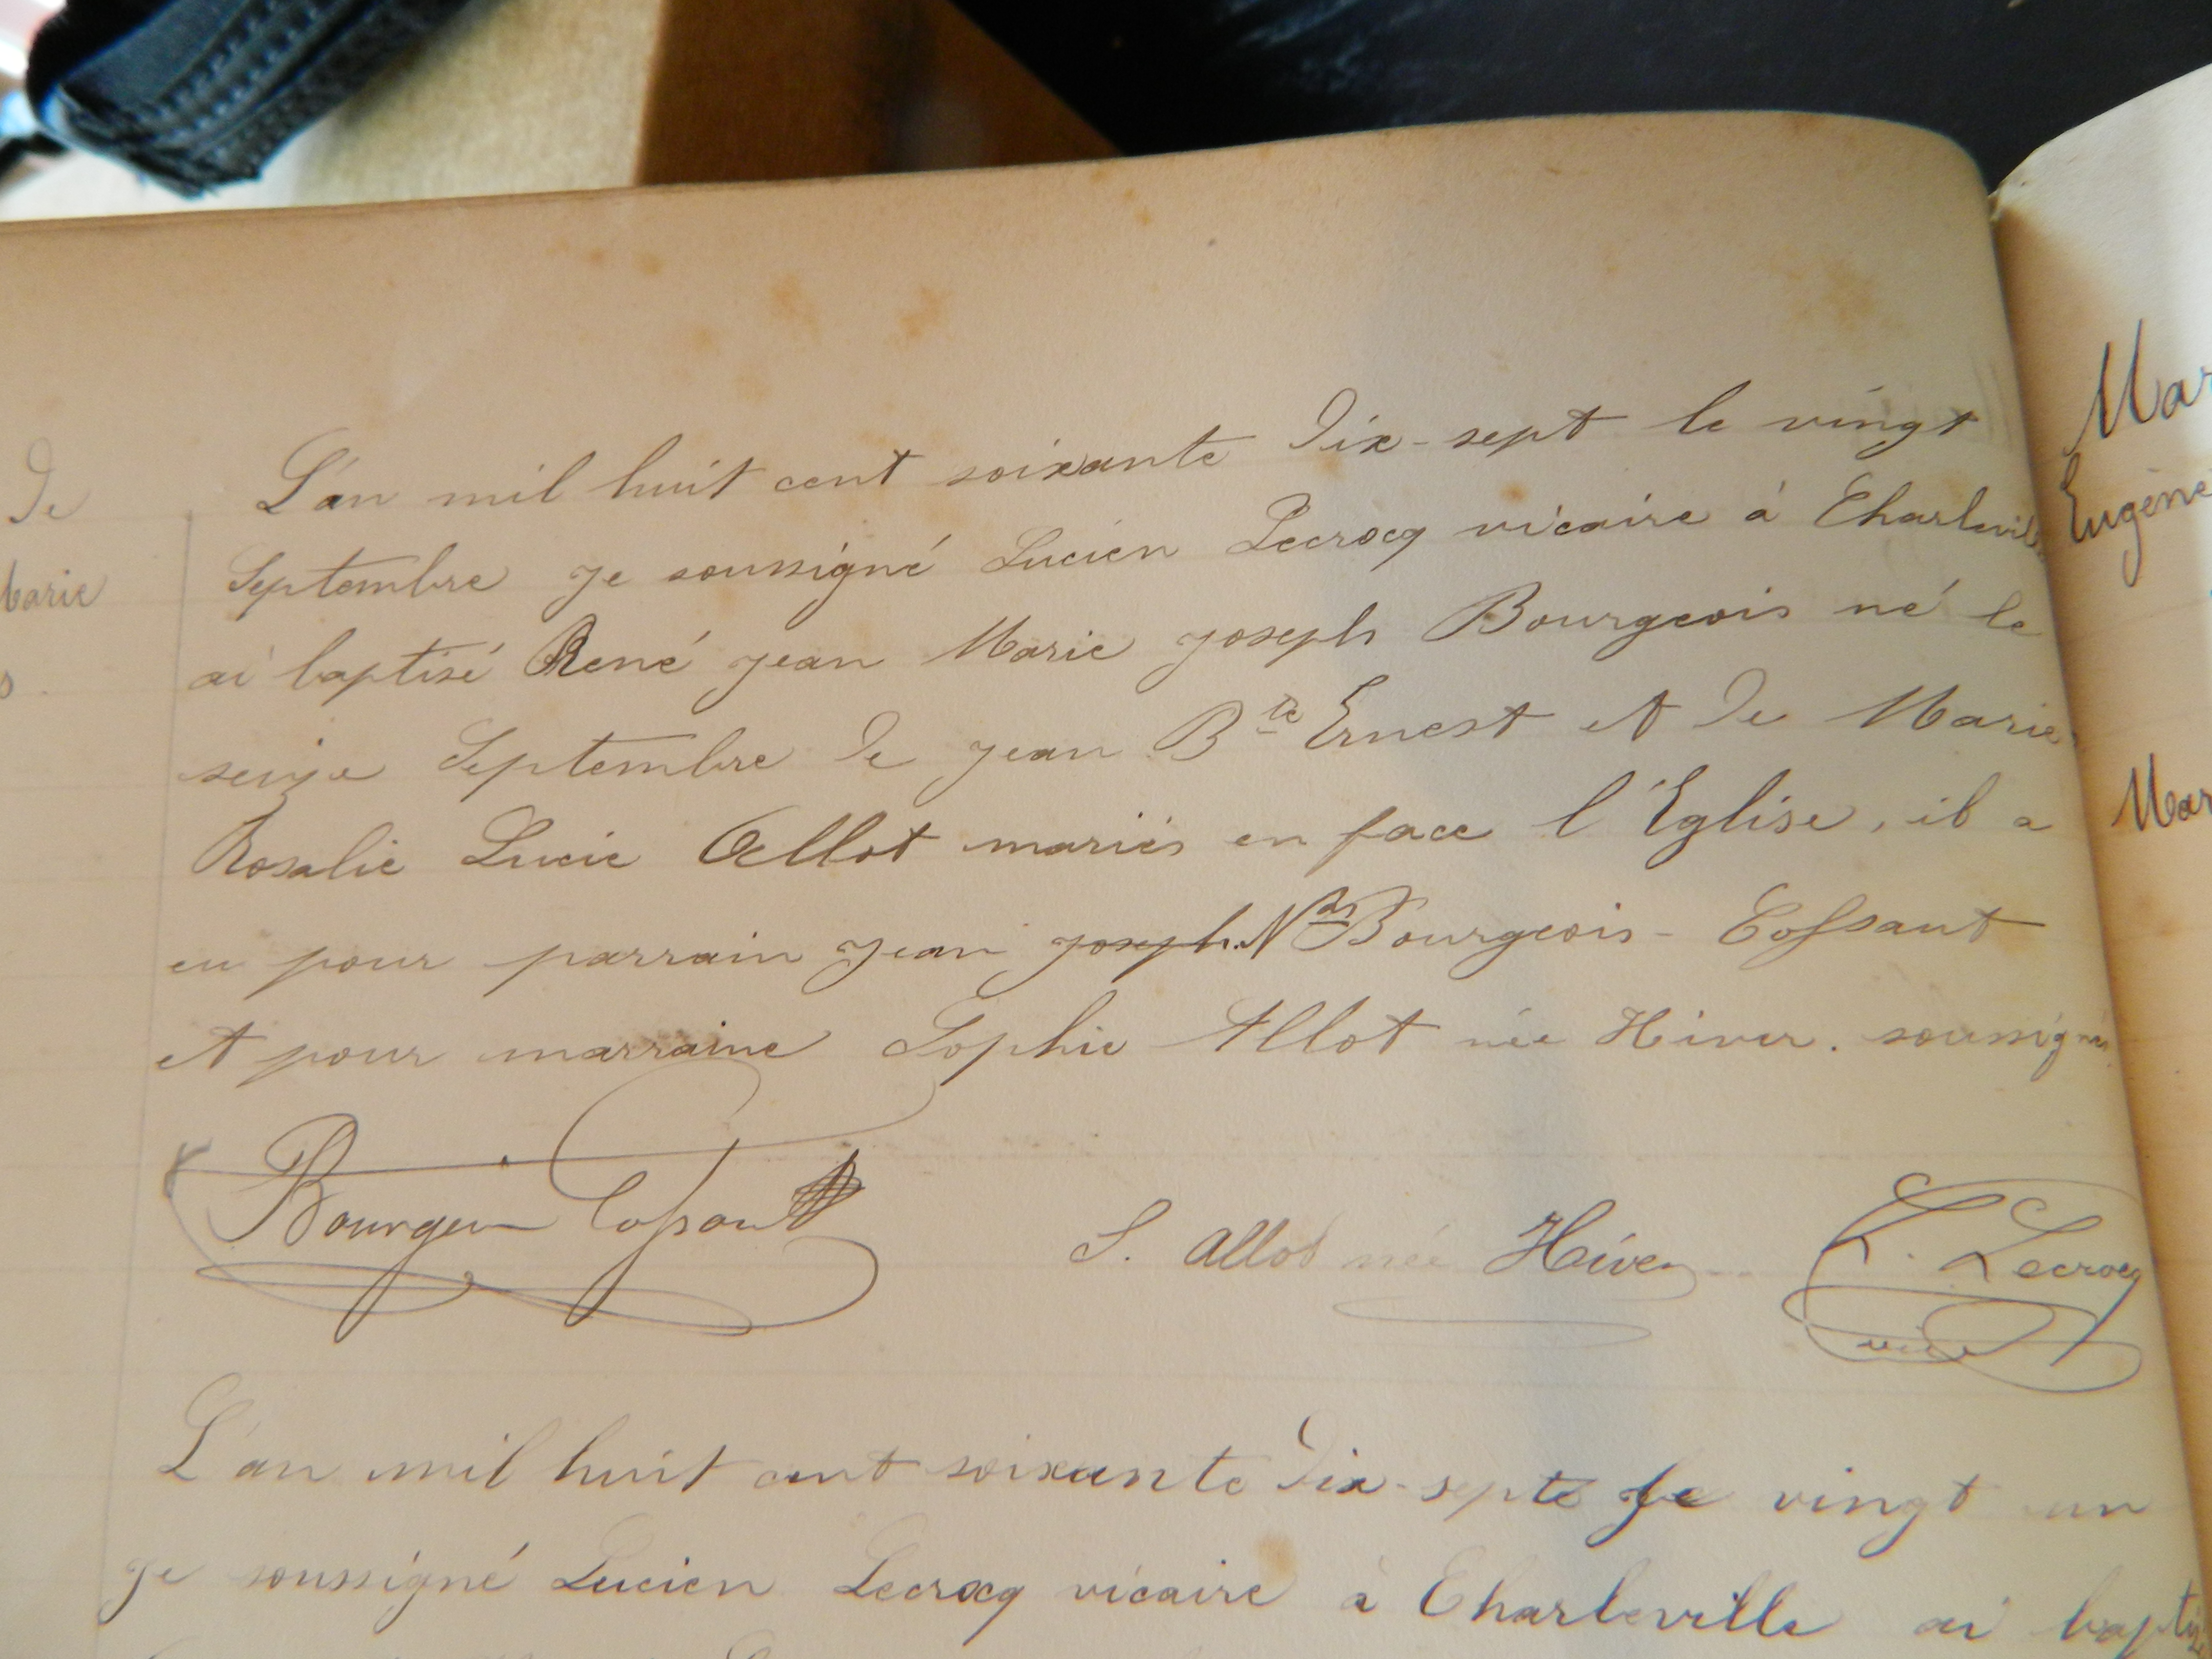 de
Marie
s.
L'an mil huit cent soixante dix-sept le vingt
Septembre je soussigné Lucien Lecrocq vicaire à Charlevil
ai baptisé René jean Marie joseph Bourgeois né le
seize Septembre de jean Bte Ernest et de Marie
Rosalie Lucie Allot mariés en face l'Eglise, il a
eu pour parrain Jean joseph Nas Bourgeois - Cossaut
et pour marraine Sophie Allot née Hiver. soussignés
Bourgeois Cossaut
S. Allot née Hiver
L. Lecrocq
vic
L'an mil huit cent soixante dix-sept le vingt un
je soussigné Lucien Lecrocq vicaire à Charleville ai baptis
Mar
Eugène
Mar